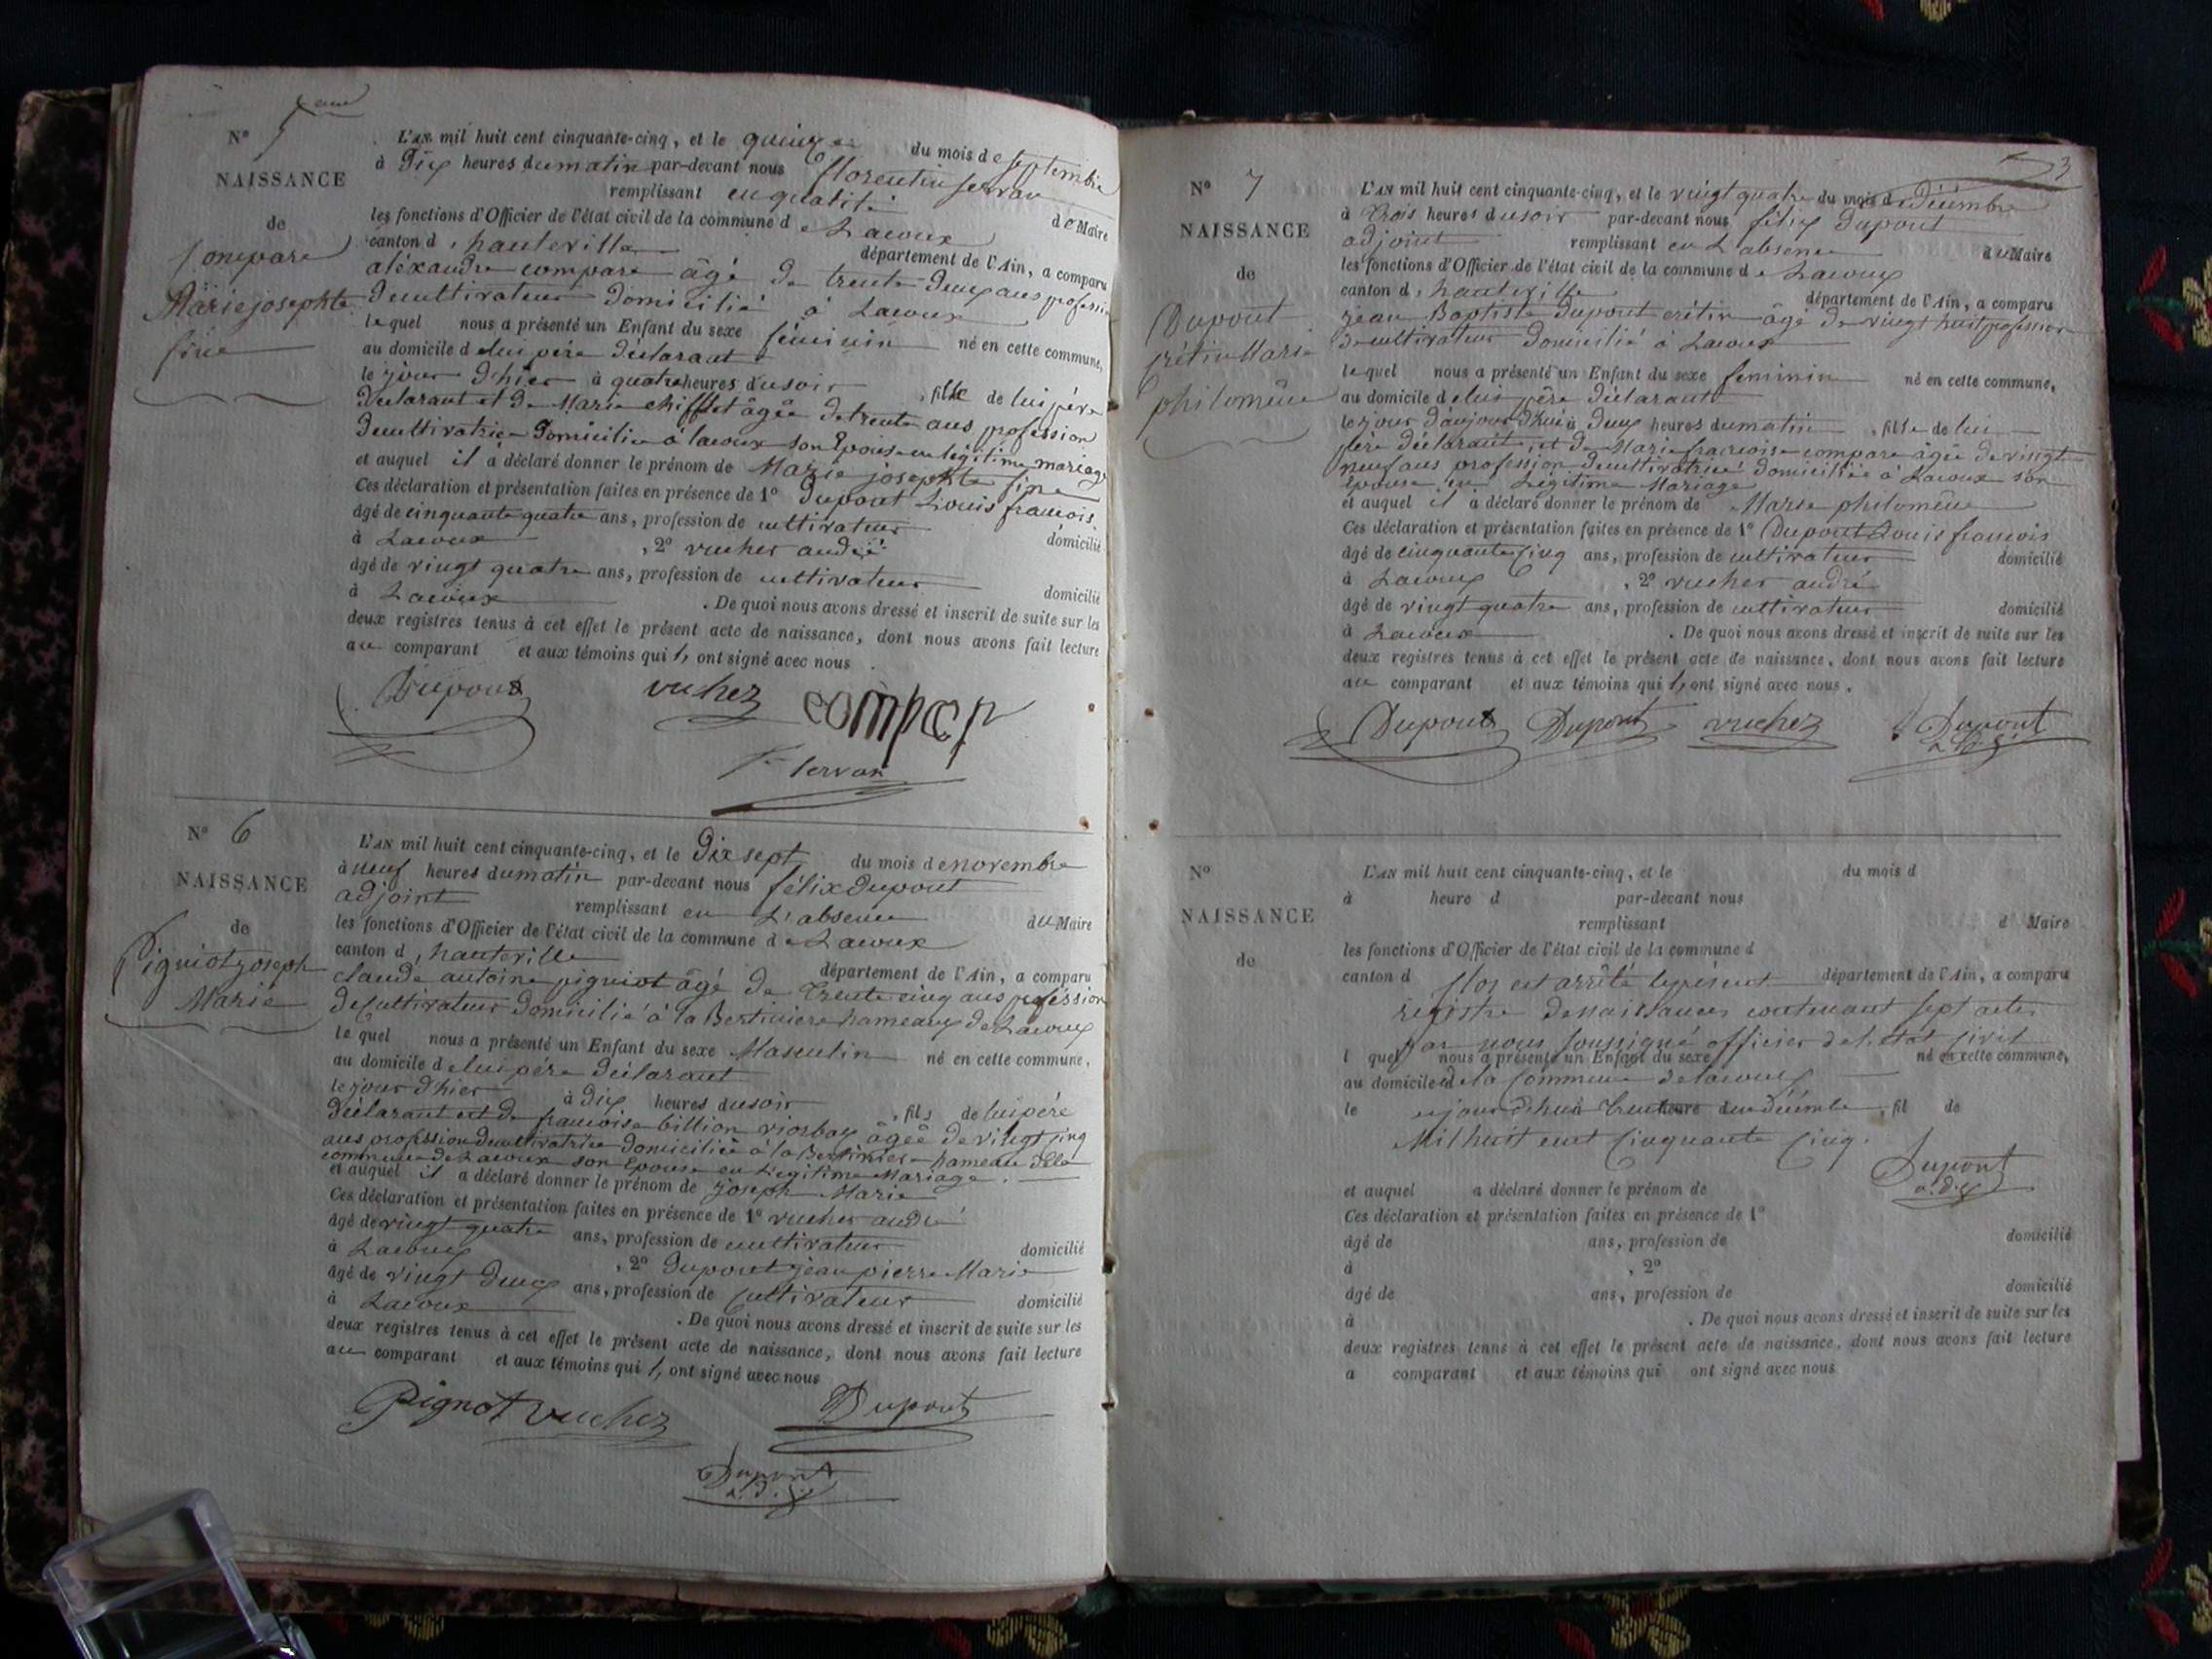 N° 5eme
NAISSANCE
de
Compare
Marie josephte
fine
L'AN mil huit cent cinquante-cinq, et le quinze du mois de septembre
à Dix heures du matin par-devant nous florentin servan
remplissant en qualité de Maire
les fonctions d'Officier de l'état civil de la commune de Lacoux
canton d'hauteville département de l'Ain, a comparu
aléxandre compare âgé de trente deux ans profession
de cultivateur domicilié à Lacoux
lequel nous a présenté un Enfant du sexe féminin né en cette commune,
au domicile de lui père déclarant
le jour d'hier à quatre heures du soir, fille de lui père
déclarant et de Marie chifflet âgée de trente ans profession
de cultivatrice Domicilié à lacoux son Epouse en légitime mariage
et auquel il a déclaré donner le prénom de Marie josephte fine
Ces déclaration et présentation faites en présence de 1° Dupont Louis francois
âgé de cinquante quatre ans, profession de cultivateur domicilié
à Lacoux, 2° vuchez andré
âgé de vingt quatre ans, profession de cultivateur domicilié
à Lacoux. De quoi nous avons dressé et inscrit de suite sur les
deux registres tenus à cet effet le présent acte de naissance, dont nous avons fait lecture
au comparant et aux témoins qui ont signé avec nous.
Dupont vuchez compar
servan
N° 6
NAISSANCE
de
Pigniot joseph
Marie
L'AN mil huit cent cinquante-cinq, et le Dix sept du mois de novembre
à neuf heures du matin par-devant nous félix dupont
adjoint remplissant en L'absence du Maire
les fonctions d'Officier de l'état civil de la commune de Lacoux
canton d'hauteville département de l'Ain, a comparu
claude antoine pigniot âgé de trente cinq ans profession
de cultivateur domicilié à la Bertiniere hameaux de Lacoux
lequel nous a présenté un Enfant du sexe Masculin né en cette commune,
au domicile de lui père déclarant
le jour d'hier à dix heures du soir, fils de lui père
déclarant et de francoise billion âgée de vingt cinq
ans profession de cultivatrice domiciliée à la Bertiniere hameau de la
commune de Lacoux son Epouse en Légitime Mariage.
et auquel il a déclaré donner le prénom de joseph Marie
Ces déclaration et présentation faites en présence de 1° vuchez andré
âgé de vingt quatre ans, profession de cultivateur domicilié
à Lacoux, 2° dupont jean pierre Marie
âgé de vingt deux ans, profession de Cultivateur domicilié
à Lacoux. De quoi nous avons dressé et inscrit de suite sur les
deux registres tenus à cet effet le présent acte de naissance, dont nous avons fait lecture
au comparant et aux témoins qui ont signé avec nous
Pignot vuchez Dupont
Dupont
3
N° 7
NAISSANCE
de
Dupont
crétin Marie
philomène
L'AN mil huit cent cinquante-cinq, et le vingt quatre du mois de Décembre
à trois heures du soir par-devant nous félix Dupont
adjoint remplissant en L'absence du Maire
les fonctions d'Officier de l'état civil de la commune de Lacoux
canton d'hauteville département de l'Ain, a comparu
jean Baptiste Dupont crétin âgé de vingt huit profession
de cultivateur domicilié à Lacoux
lequel nous a présenté un Enfant du sexe feminin né en cette commune,
au domicile de lui père déclarant
le jour d'aujourd'hui à Deux heures du matin, fille de lui
père déclarant, et de Marie francoise compare âgée de vingt
neuf ans profession de cultivatrice domiciliée à Lacoux son
épouse en Légitime Mariage
et auquel il a déclaré donner le prénom de Marie philomène
Ces déclaration et présentation faites en présence de 1° Dupont Louis francois
âgé de cinquante cinq ans, profession de cultivateur domicilié
à Lacoux, 2° vuchez andré
âgé de vingt quatre ans, profession de cultivateur domicilié
à Lacoux. De quoi nous avons dressé et inscrit de suite sur les
deux registres tenus à cet effet le présent acte de naissance, dont nous avons fait lecture
au comparant et aux témoins qui ont signé avec nous.
Dupont Dupont vuchez Dupont
N°
NAISSANCE
de
L'AN mil huit cent cinquante-cinq, et le du mois d
à heure d par-devant nous
remplissant d Maire
les fonctions d'Officier de l'état civil de la commune d
canton d département de l'Ain, a comparu
Clos et arrêté le présent
registre de naissances contenant sept actes
par nous soussigné officier de l'état civil
l quel nous a présenté un Enfant du sexe né en cette commune,
au domicile d de la Commune de lacoux
le heure d, fil de
aujourd'hui trente un décembre
Mil huit cent Cinquante Cinq.
Dupont
et auquel a déclaré donner le prénom de
Ces déclaration et présentation faites en présence de 1°
âgé de ans, profession de domicilié
à, 2°
âgé de ans, profession de domicilié
à. De quoi nous avons dressé et inscrit de suite sur les
deux registres tenus à cet effet le présent acte de naissance, dont nous avons fait lecture
a comparant et aux témoins qui ont signé avec nous